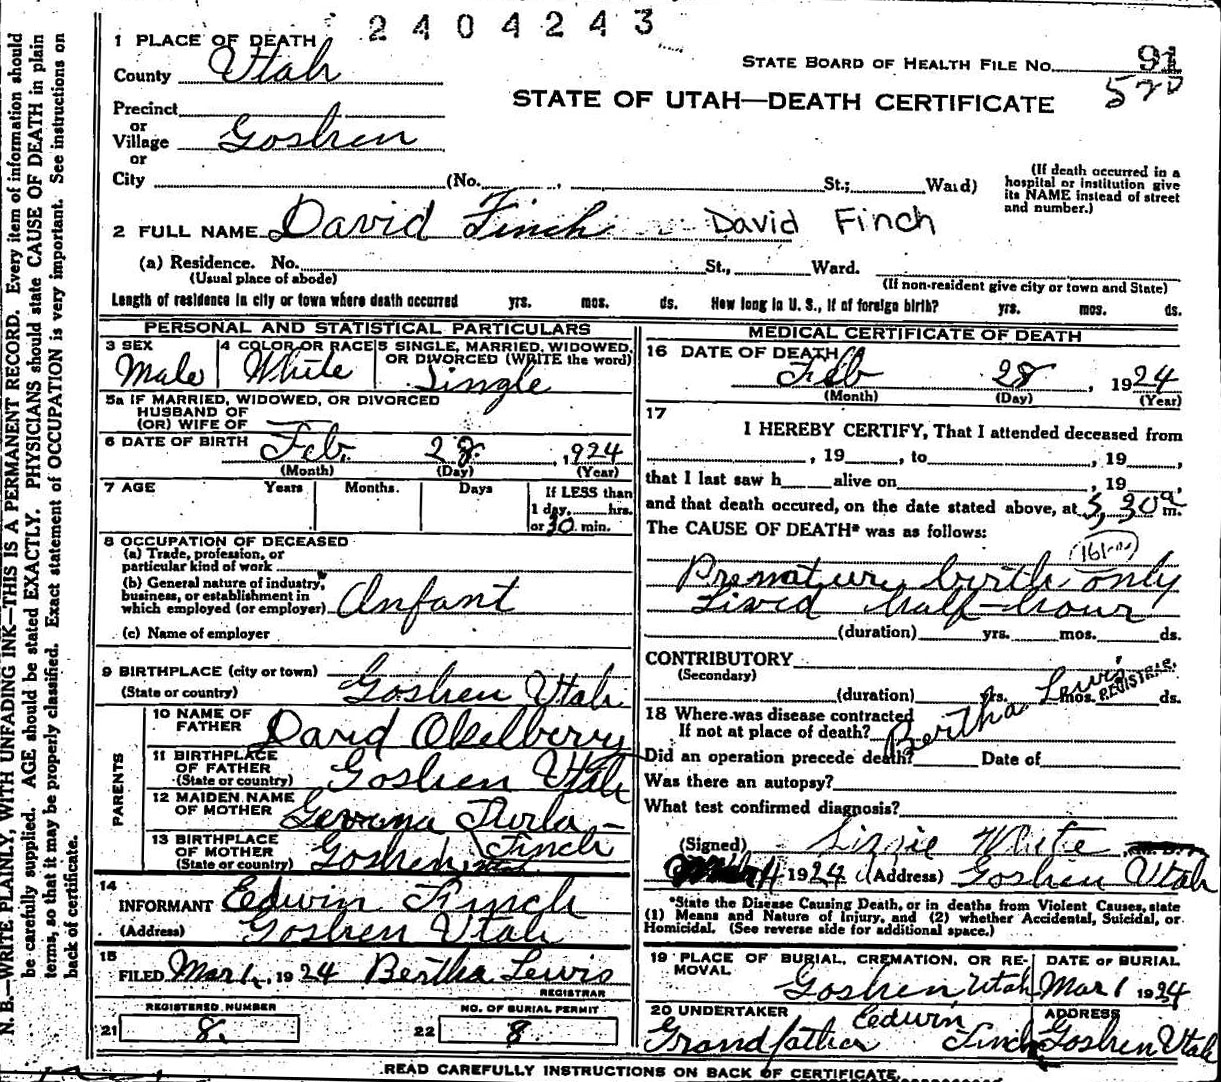 2404243
1 PLACE OF DEATH
STATE BOARD OF HEALTH FILE No. 91
County Utah
520
STATE OF UTAH—DEATH CERTIFICATE
Precinct
or
Village Goshen
or
City (No. , St.; Ward)
(If death occurred in a hospital or institution give its NAME instead of street and number.)
2 FULL NAME David Finch David Finch
(a) Residence. No. St., Ward.
(Usual place of abode) (If non-resident give city or town and State)
Length of residence in city or town where death occurred yrs. mos. ds. How long in U. S., if of foreign birth? yrs. mos. ds.
PERSONAL AND STATISTICAL PARTICULARS
3 SEX Male
4 COLOR OR RACE White
5 SINGLE, MARRIED, WIDOWED, OR DIVORCED (WRITE the word) Single
5a IF MARRIED, WIDOWED, OR DIVORCED
HUSBAND OF
(OR) WIFE OF
6 DATE OF BIRTH Feb. 28. , 1924
(Month) (Day) (Year)
7 AGE Years Months. Days If LESS than
1 day, hrs.
or 30 min.
8 OCCUPATION OF DECEASED
(a) Trade, profession, or
particular kind of work
(b) General nature of industry,
business, or establishment in
which employed (or employer) Infant
(c) Name of employer
9 BIRTHPLACE (city or town)
(State or country) Goshen Utah
PARENTS
10 NAME OF FATHER David Okelberry
11 BIRTHPLACE OF FATHER (State or country) Goshen Utah
12 MAIDEN NAME OF MOTHER Finch
13 BIRTHPLACE OF MOTHER (State or country) Goshen,
14 INFORMANT Edwin Finch
(Address) Goshen Utah
15 FILED Mar 1, 1924 Bertha Lewis
REGISTRAR
REGISTERED NUMBER
21 8.
NO. OF BURIAL PERMIT
22 8
MEDICAL CERTIFICATE OF DEATH
16 DATE OF DEATH Feb 28 , 1924
(Month) (Day) (Year)
17
I HEREBY CERTIFY, That I attended deceased from
, 19 , to , 19 ,
that I last saw h alive on , 19 ,
and that death occured, on the date stated above, at 5,30 a m.
The CAUSE OF DEATH* was as follows:
Premature birth only
Lived half-hour
(duration) yrs. mos. ds.
CONTRIBUTORY
(Secondary)
(duration) yrs. mos. ds.
Bertha Lewis REGISTRAR.
18 Where was disease contracted
If not at place of death?
Did an operation precede death? Date of
Was there an autopsy?
What test confirmed diagnosis?
(Signed) Lizzie White
4 1924 (Address) Goshen Utah
*State the Disease Causing Death, or in deaths from Violent Causes, state
(1) Means and Nature of Injury, and (2) whether Accidental, Suicidal, or
Homicidal. (See reverse side for additional space.)
19 PLACE OF BURIAL, CREMATION, OR REMOVAL Goshen, Utah
DATE OF BURIAL Mar 1 1924
20 UNDERTAKER Edwin Finch
Grandfather
ADDRESS Goshen Utah
READ CAREFULLY INSTRUCTIONS ON BACK OF CERTIFICATE.
N. B.—WRITE PLAINLY, WITH UNFADING INK—THIS IS A PERMANENT RECORD. Every item of information should
be carefully supplied. AGE should be stated EXACTLY. PHYSICIANS should state CAUSE OF DEATH in plain
terms, so that it may be properly classified. Exact statement of OCCUPATION is very important. See instructions on
back of certificate.